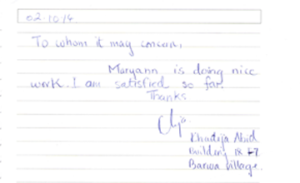 02.10.14
To whom it may concern,
Maryann is doing nice
work. I am satisfied so far.
Thanks
Khadija
Building
Barwa Village.